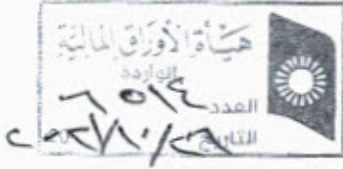 هيأة الأوراق المالية
الواردة
العدد ٦٥١٤
التاريخ